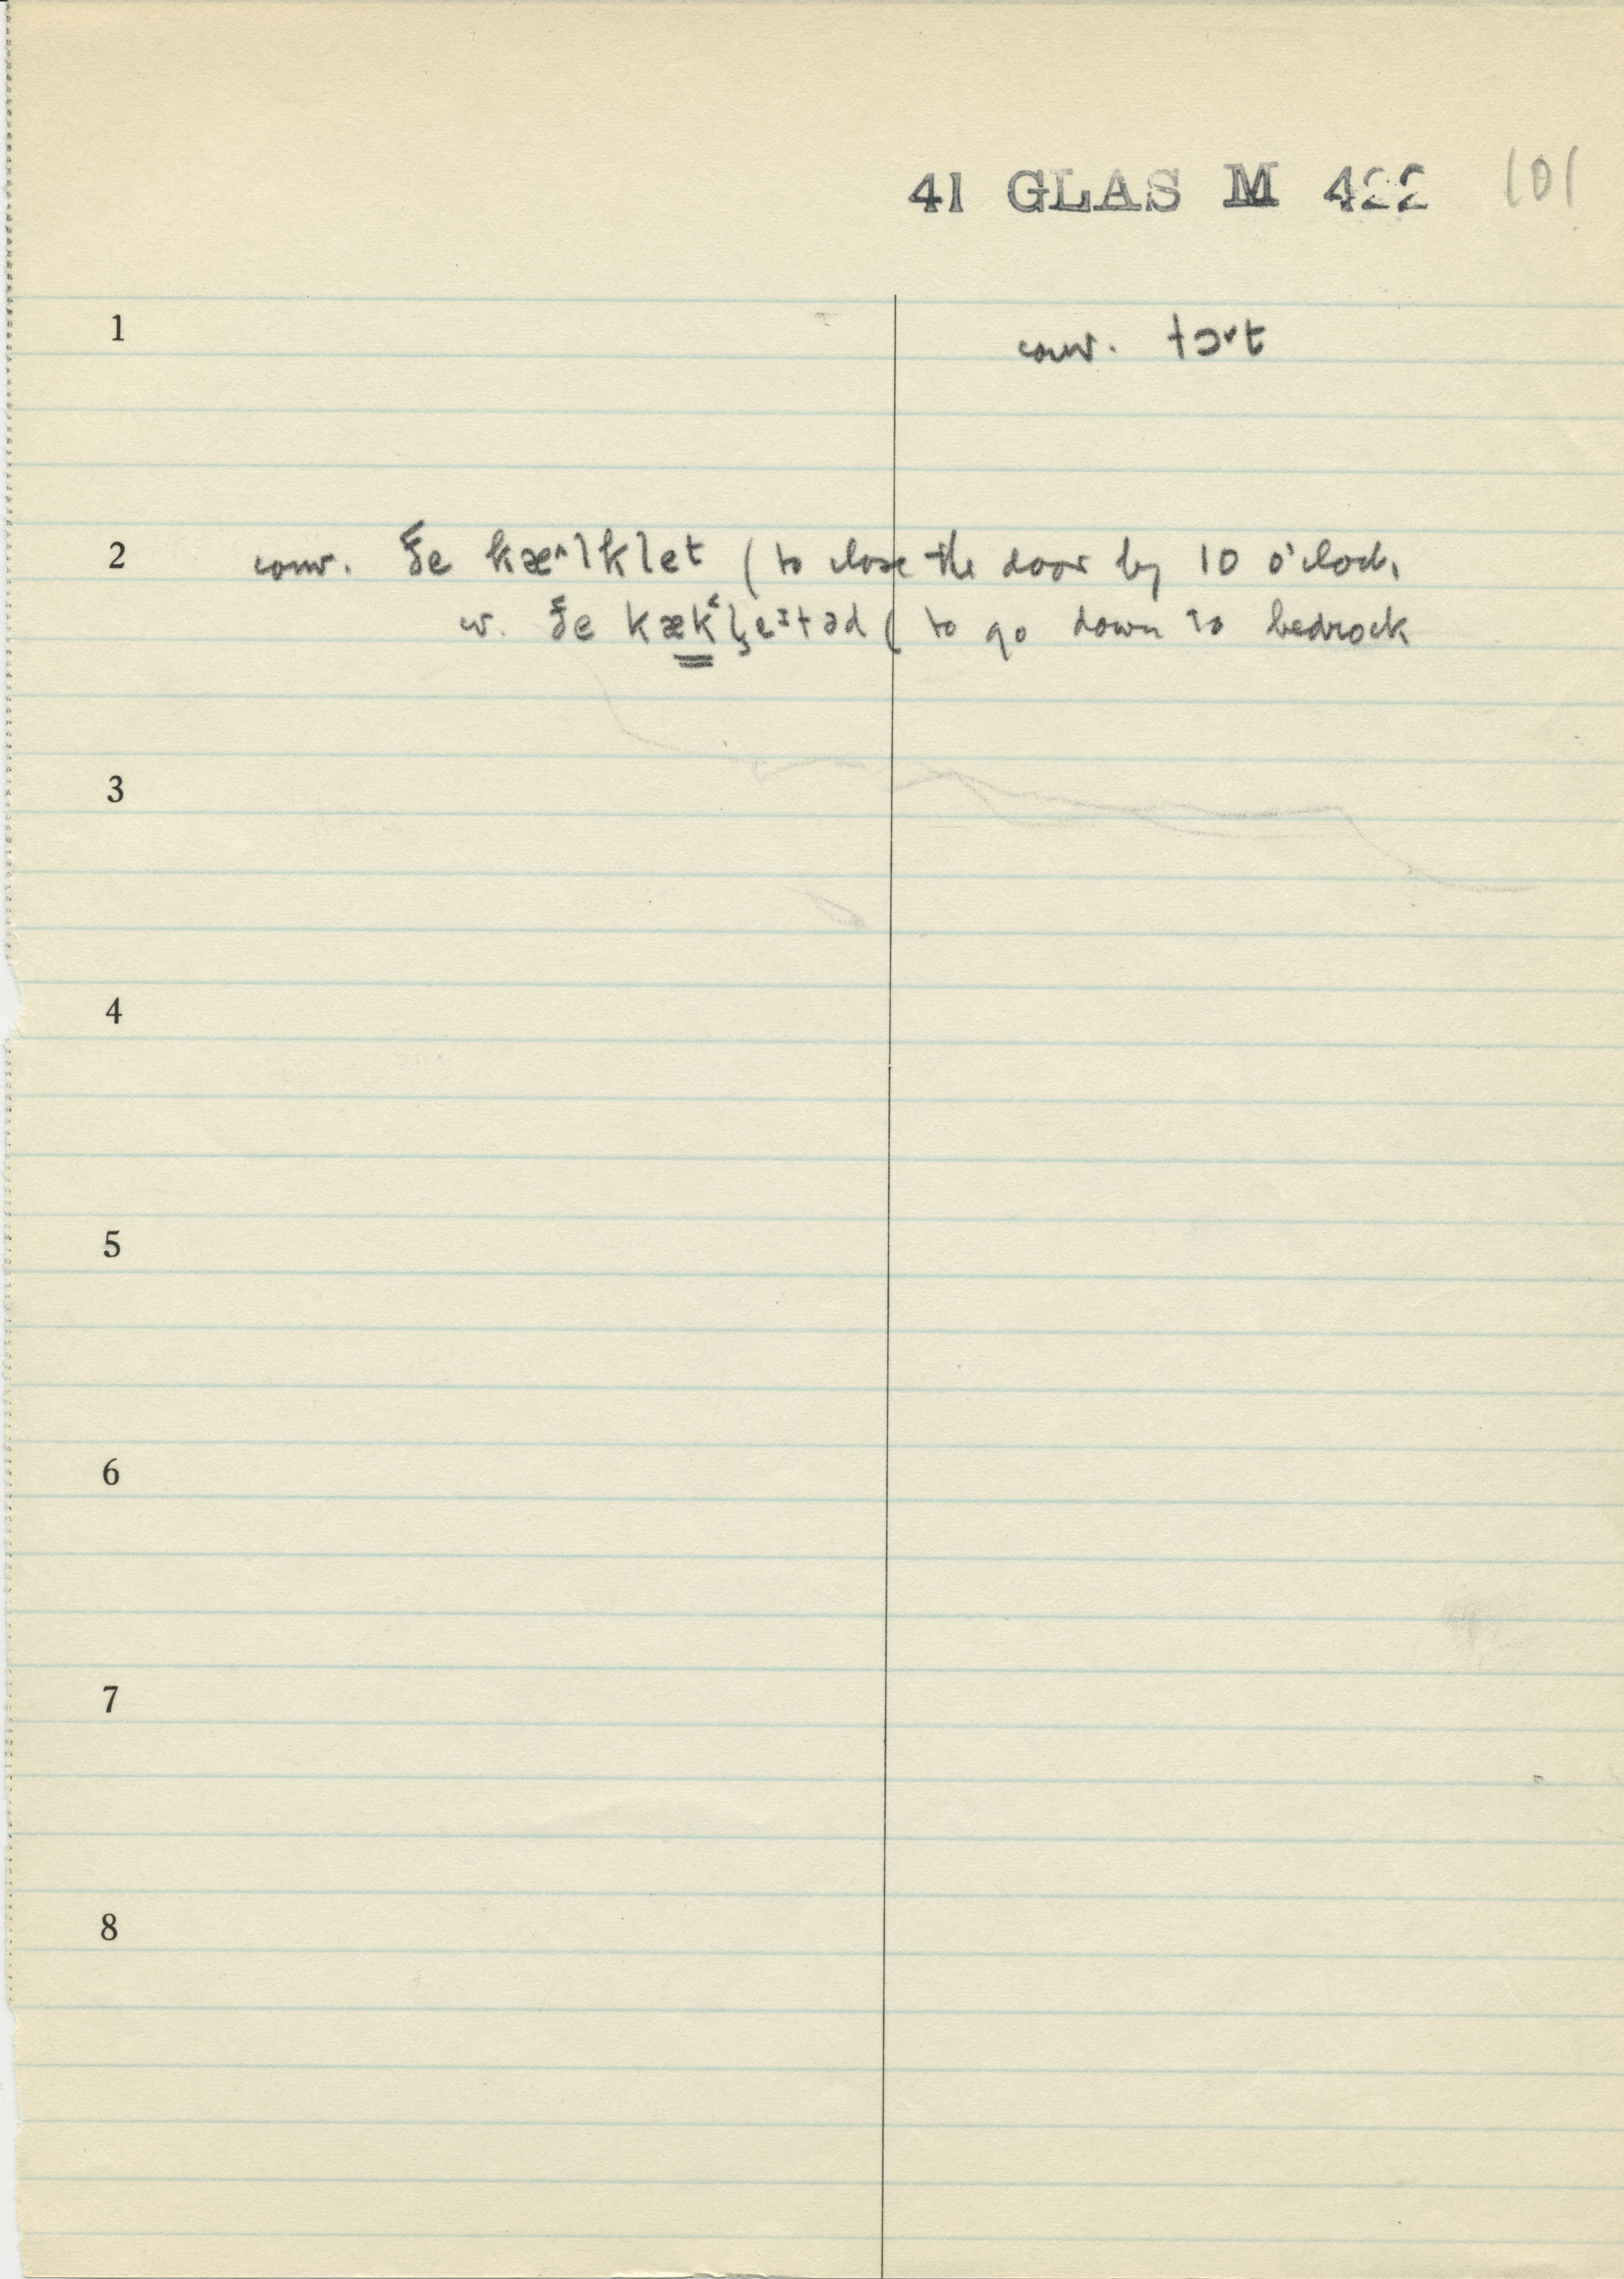 41 GLAS M 422 101
1 conv. tɔ˞t
2 conv. ðe kæ^lklet ( to close the door by 10 o'clock
w. ðe kækʻl̥eᶦtəd ( to go down to bedrock
3
4
5
6
7
8